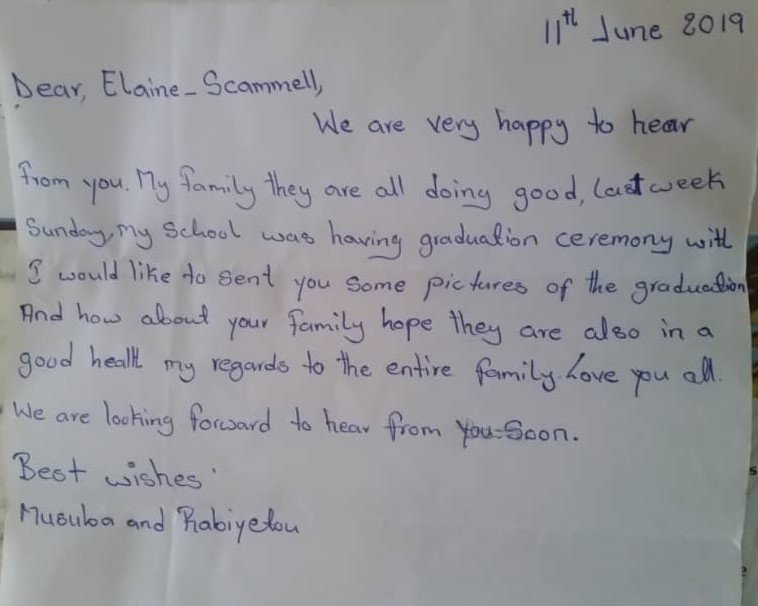 11th June 2019
Dear, Elaine-Scammell,
We are very happy to hear
from you. My family they are all doing good, last week
Sunday, my School was having graduation ceremony with
I would like to sent you some pictures of the graduation
And how about your family hope they are also in a
good health my regards to the entire family. Love you all.
We are looking forward to hear from you-Soon.
Best wishes
Musuba and Rabiyetou